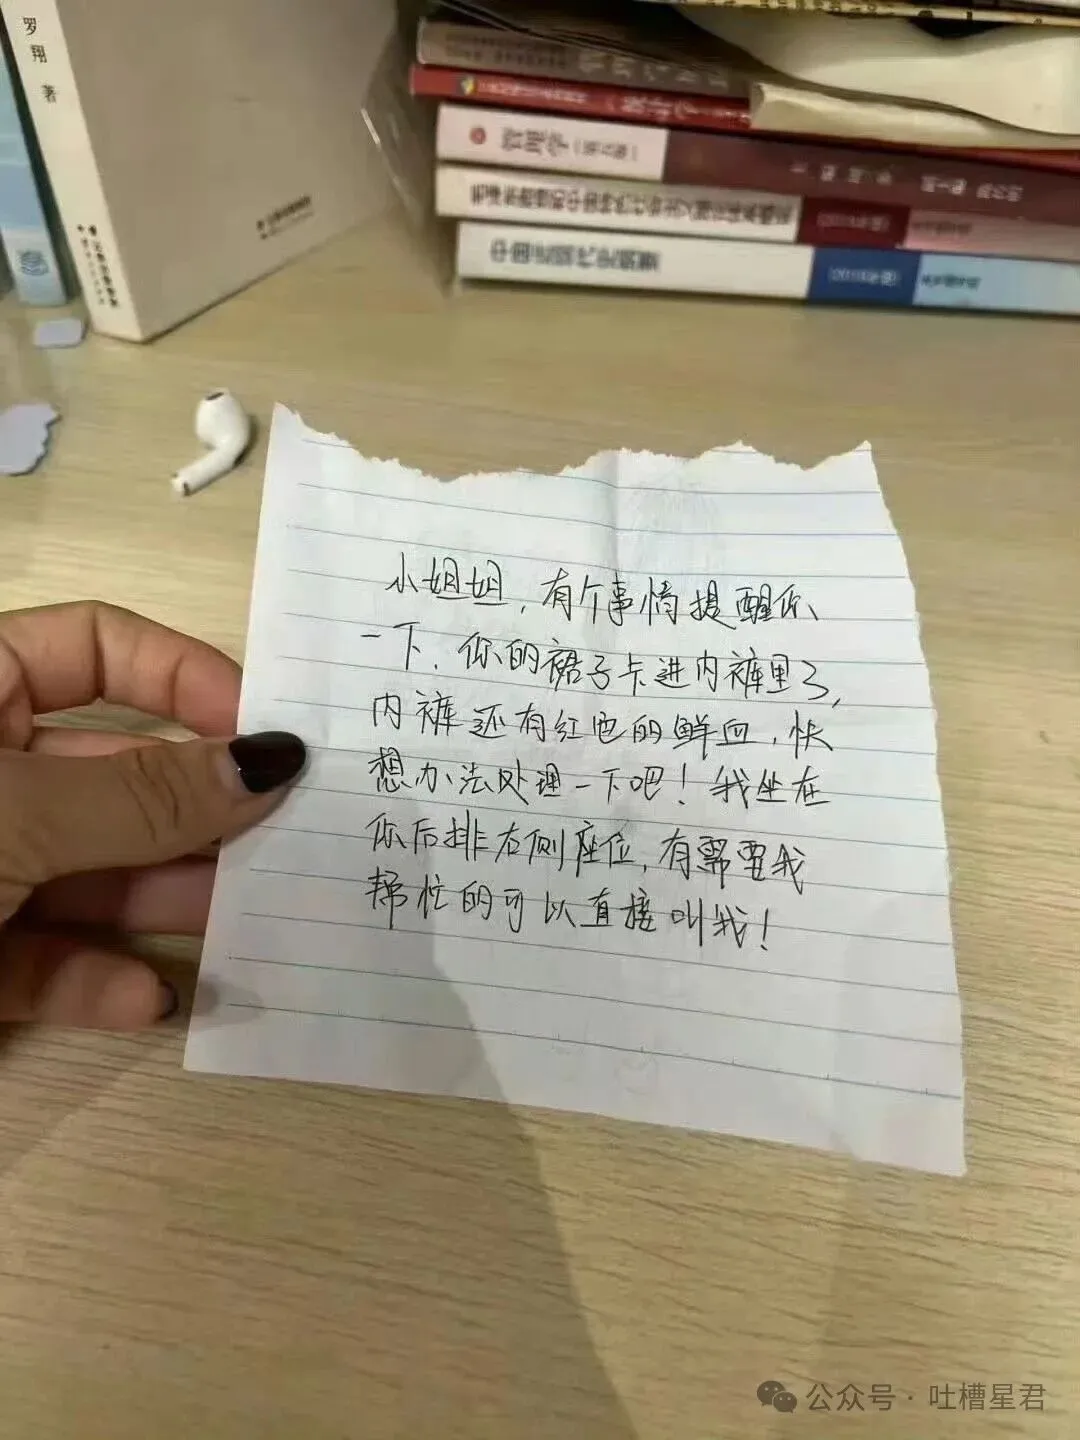 罗翔 著
管理学
中国近现代史纲要
小姐姐，有个事情提醒你
一下，你的裙子卡进内裤里了，
内裤还有红色的鲜血，快
想办法处理一下吧！我坐在
你后排右侧座位，有需要我
帮忙的可以直接叫我！
公众号·吐槽星君